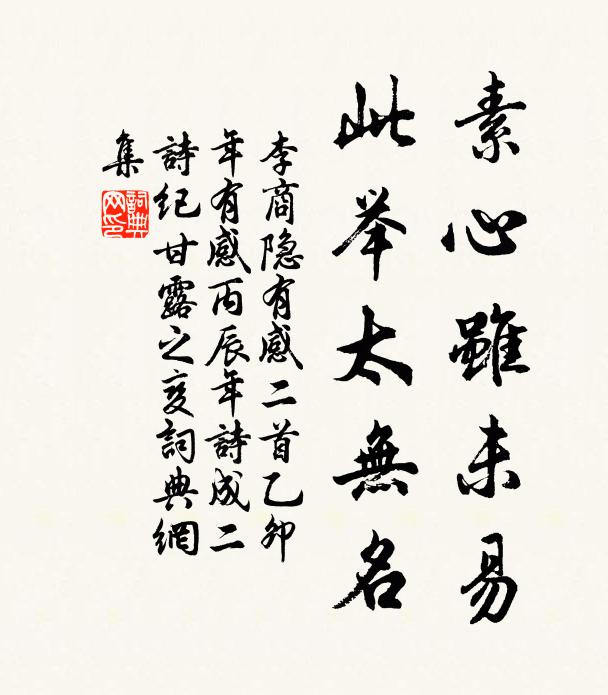 素心雖未易
此举太無名
李商隐有感二首乙卯
年有感丙辰年詩成二
詩纪甘露之变詞典網
集
詞典
网印